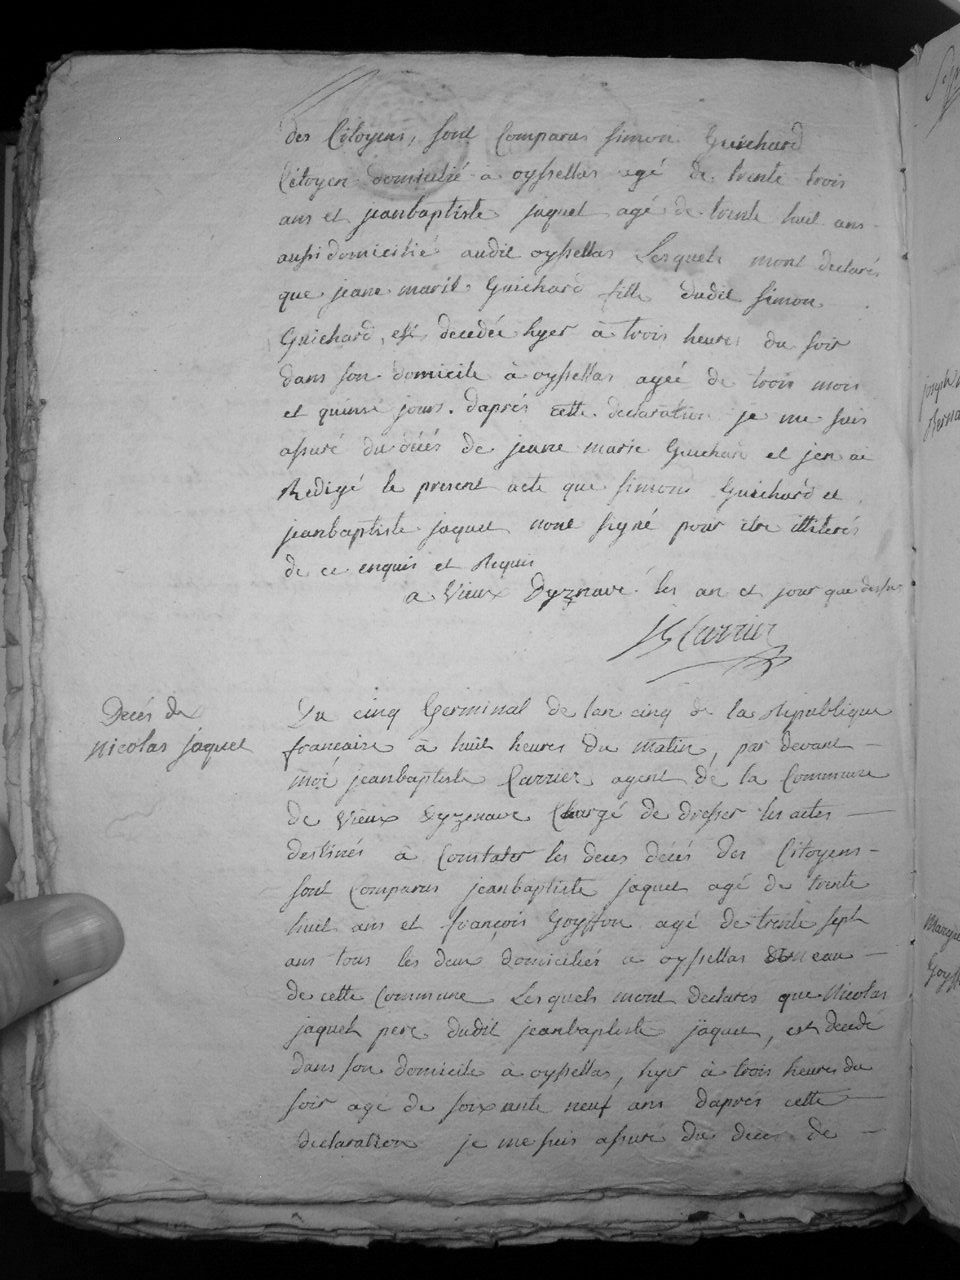 des Citoyens, sont Comparus Simon Guichard
Citoyen domicilié à oyssellas agé de trente trois
ans et jeanbaptiste jaquet agé de trente huit ans
aussi domicilié audit oyssellas Lesquels mont declarés
que jeane marie Guichard fille dudit simon
Guichard, est decedée hyer à trois heures du soir
dans son domicile à oyssellas agéé de trois mois
et quinse jours. daprés cette declaration je me suis
assuré du décés de jeane marie Guichard et jen ai
Redigé le present acte que simon Guichard et
jeanbaptiste jaquet nont signé pour etre illiterés
de ce enquis et Requis
a Vieux Dyzenave les an et jour que dessus
JB Carrier
Decés de
Nicolas jaquet
Du cinq Germinal de lan cinq de la République
françaisse à huit heures du matin, par devant
moi jeanbaptiste Carrier agent de la Commune
de Vieux Dyzenave Chargé de dresser les actes
destinés a Constater les deces décés des Citoyens
sont Comparus jeanbaptiste jaquet agé de trente
huit ans et françois Goyffon agé de trente sept
ans tous les deux domiciliés a oyssellas eau
de cette Commune Lesquels mont declares que Nicolas
jaquet pere dudit jeanbaptiste jaquet, est decedé
dans son domicile a oyssellas, hyer à trois heures du
soir age de soixante neuf ans daprés cette
declaration je me suis assuré du deces de
joseph
Berna
Margue
Goyff